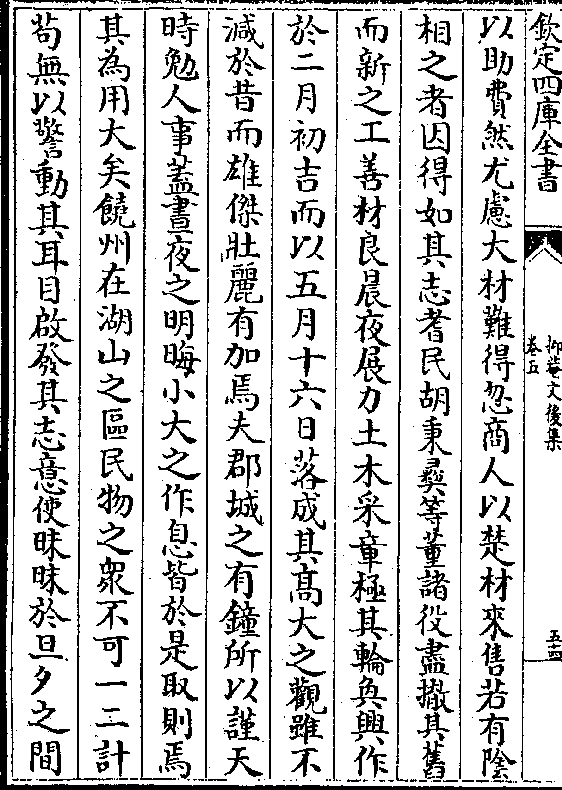 欽定四庫全書
抑菴文後集
卷五
五十四
以助費然尤慮大材難得忽商人以楚材來售若有陰
相之者因得如其志耆民胡秉彞等董諸役盡撤其舊
而新之工善材良晨夜展力土木采章極其輪奐興作
於二月初吉而以五月十六日落成其髙大之觀雖不
減於昔而雄傑壯麗有加焉夫郡城之有鐘所以謹天
時勉人事蓋晝夜之明晦小大之作息皆於是取則焉
其為用大矣饒州在湖山之區民物之衆不可一二計
苟無以警動其耳目啟發其志意使昧昧於旦夕之間